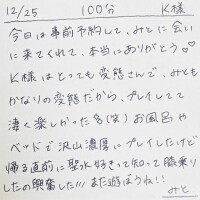 12/25 100分 K様
今日は事前予約して、みとに会い
に来てくれて、本当にありがとう♡
K様はとっても変態さんで、みとも
かなりの変態だから、プレイしてて
凄く楽しかった(笑)お風呂や
ベッドで沢山濃厚にプレイしたけど
帰る直前に聖水好きって知って膝乗り
したの興奮した!!! また遊ぼうね!!
みと